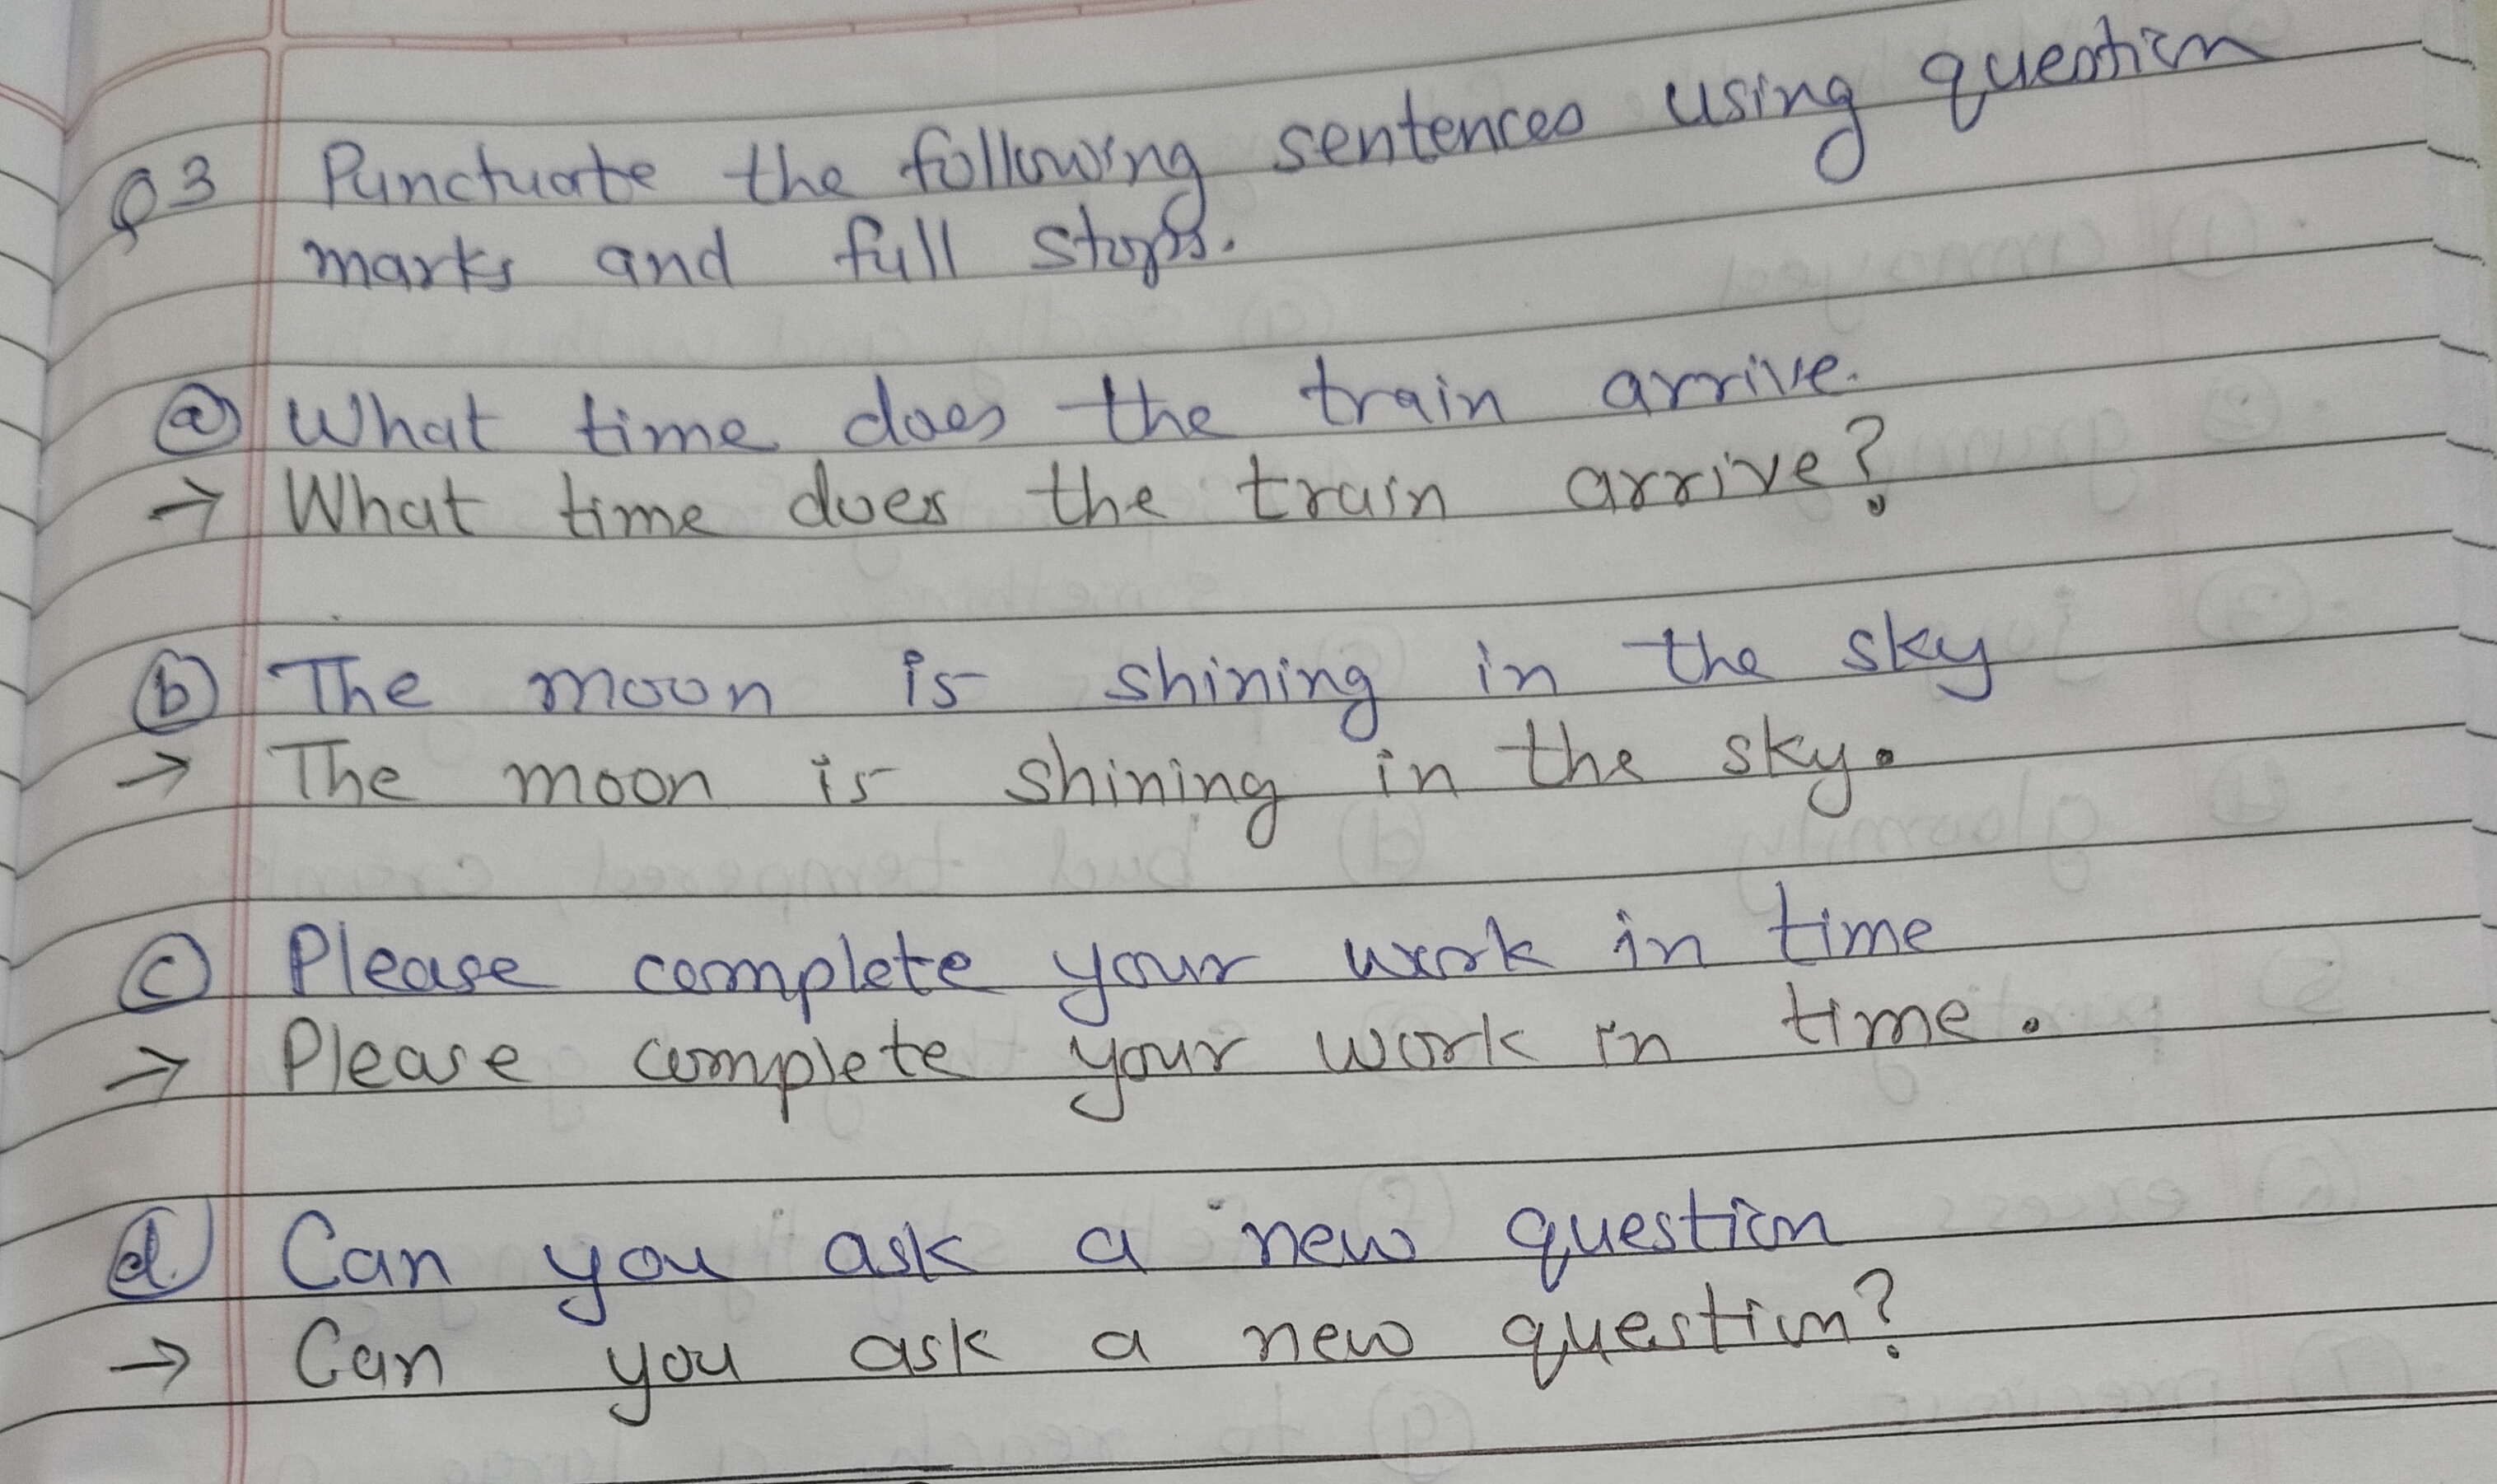 Q3 Punctuate the following sentences using question
marks and full stops.
ⓐ What time does the train arrive.
→ What time does the train arrive?
ⓑ The moon is shining in the sky
→ The moon is shining in the sky.
ⓒ Please complete your work in time
→ Please complete your work in time.
ⓓ Can you ask a new question
→ Can you ask a new question?